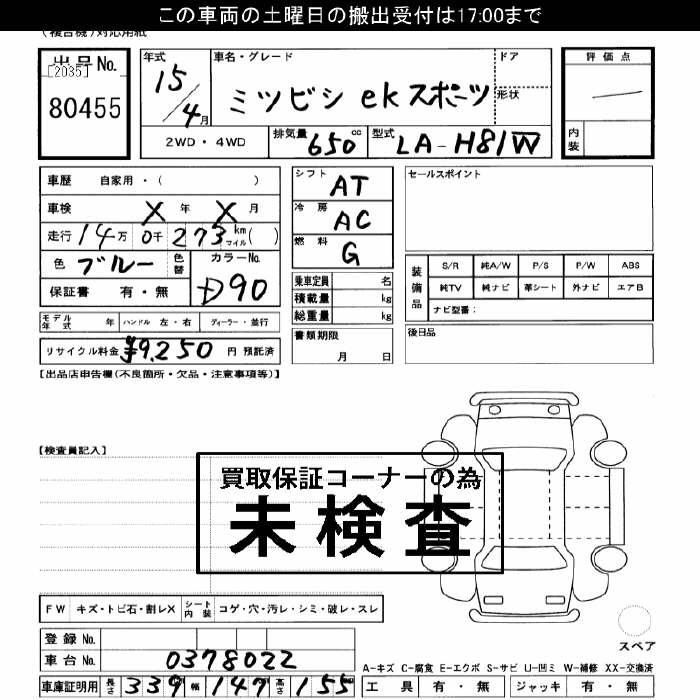 この車両の土曜日の搬出受付は17:00まで
(複合機)対応用紙
出品No.
[2035]
80455
年式
15/4月
車名・グレード
ミツビシ ekスポーツ
ドア
形状
評価点
内装
2WD・4WD
排気量 650cc
型式 LA-H81W
車歴 自家用・( )
車検 X年 X月
走行 14万 0千 273 km マイル( )
色 ブルー
色替
カラーNo.
D90
保証書 有・無
シフト AT
冷房 AC
燃料 G
乗車定員 名
積載量 kg
総重量 kg
書類期限
月 日
セールスポイント
装備品
S/R 純A/W P/S P/W ABS
純TV 純ナビ 革シート 外ナビ エアB
ナビ型番:
後日品
モデル年式 年 ハンドル 左・右 ディーラー・並行
リサイクル料金 ¥9,250 円 預託済
【出品店申告欄(不良箇所・欠品・注意事項等)】
【検査員記入】
買取保証コーナーの為
未検査
FW キズ・トビ石・割レX シート内装 コゲ・穴・汚レ・シミ・破レ・スレ
登録No.
車台No. 0378022
車庫証明用 長さ 339 幅 147 高さ 155
スペア
A-キズ C-腐食 E-エクボ S-サビ U-凹ミ W-補修 XX-交換済
工具 有・無 ジャッキ 有・無